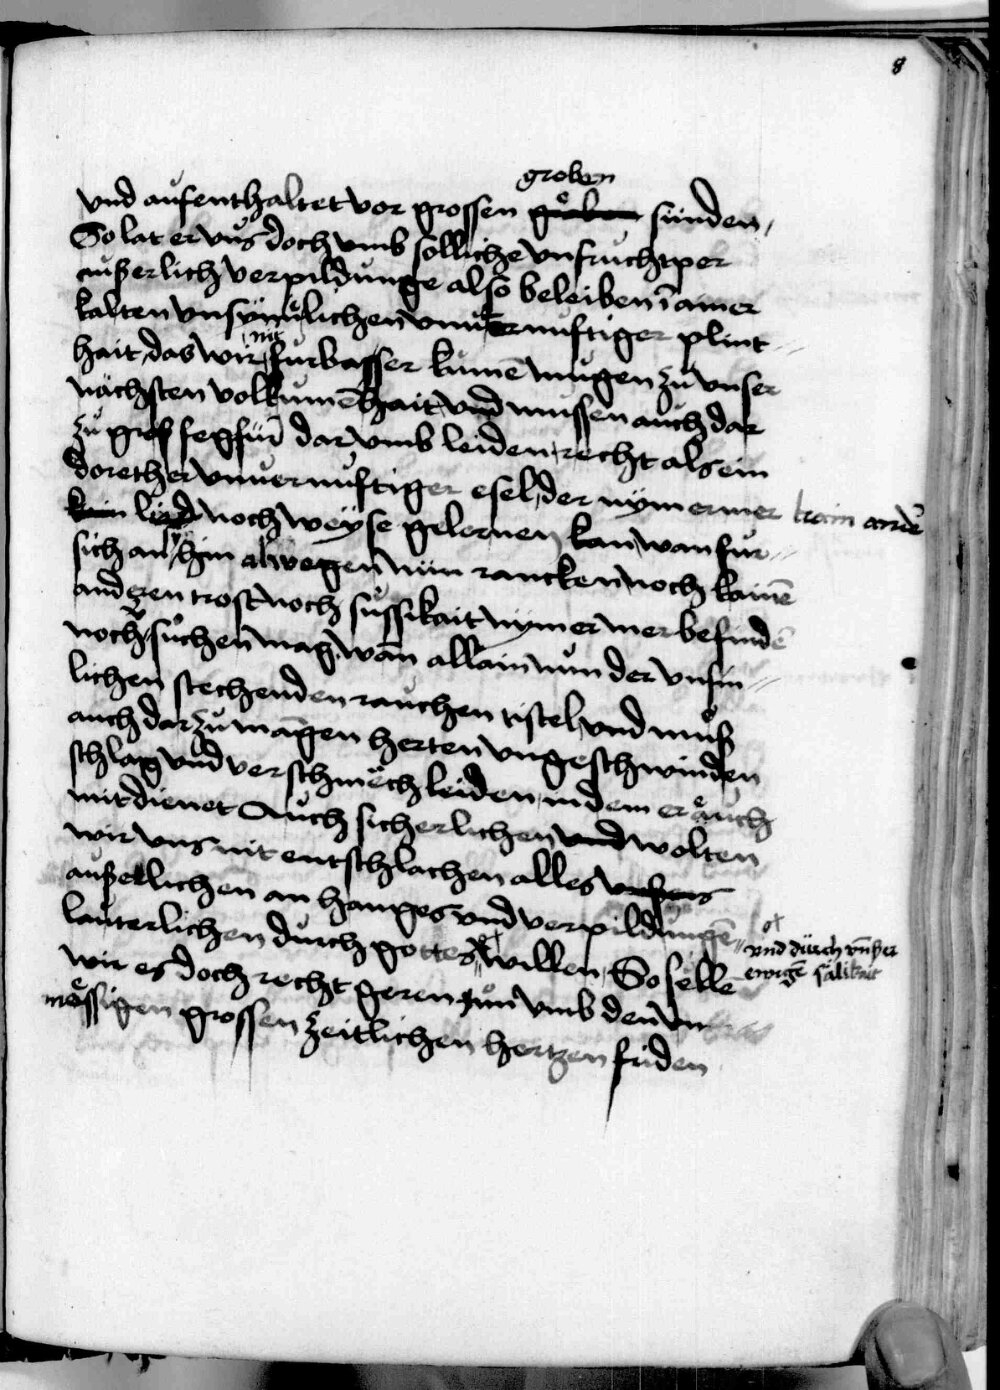 8
groben
vnd aufenthaltet vor grossen sünden,
So lat er vns doch vmb solliche vnfruchtper
eußerlich verpildunge also beleiben ī ainer
kalten vnsynnlichen vnuernuftiger plint
hait, das wir nit furbasser kumē mugen zu vnser
nächsten volkumēhait vnd mussen auch dar
zu groß fegfüir dar vmb leiden, recht als ein
dorether vnuernuftiger esel, der nymermer kain ande
lied noch weyse gelernen kan wan fur
sich an hin nun rancken noch kainē
andren trost noch süssikait nymermer befindē
noch suchen mag, wan allain nun der vnsin
lichen stechenden rauchen tistel, vnd muß
auch dar zu mangen herten vngeschwinden
schlag vnd verschmech leiden, in dem er auch
mit dienet Auch sicherlichen wolten
wir vns nit entschlachen alles
außerlichen an hanges vnd verpildungē
lauterlichen durch gottes willen, So selle
vnd durch vnßer
ewigē sälikait
wir es doch recht geren tun vmb den vn
mässigen grossen zeitlichen hertzen friden